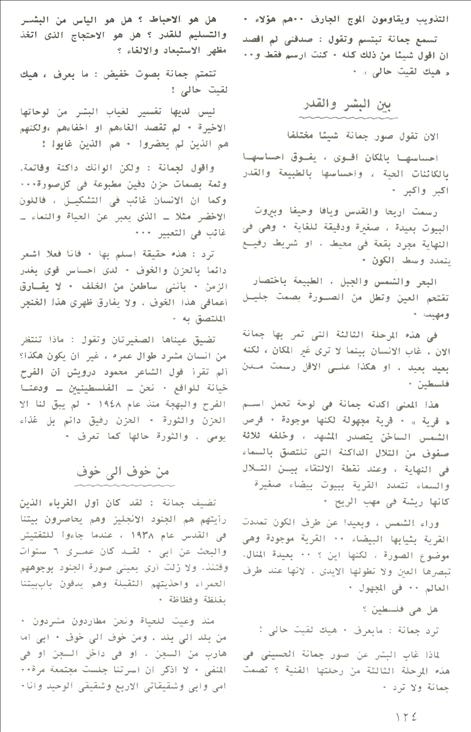 التذويب ويقاومون الموج الجارف ٠٠هم هؤلاء ٠
تسمع جمانة تبتسم وتقول : صدفني لم اقصد
ان اقول شيئا من ذلك كله ٠ كنت ارسم فقط ٠٠
« هيك لقيت حالي » ٠
بين البشر والقدر
الان تقول صور جمانة شيئا مختلفا
احساسها بالمكان اقوى ، يفوق احساسها
بالكائنات الحية ، واحساسها بالطبيعة والقدر
اكبر واكبر ٠
رسمت اريحا والقدس ويافا وحيفا وبيروت
البيوت بعيدة ، صغيرة ودقيقة للغاية ٠ وهي في
النهاية مجرد بقعة في محيط ٠ او شريط رفيع
يتمدد وسط الكون ٠
البحر والشمس والجبل ٠ الطبيعة باختصار
تقتحم العين وتطل من الصورة بصمت جليل
ومهيب ٠
في هذه المرحلة الثالثة التي تمر بها جمانة
الان ، غاب الانسان بينما لا ترى غير المكان ، لكنه
بعيد بعيد ٠ او هكذا على الاقل رسمت مدن
فلسطين ٠
هذا المعنى اكدته جمانة في لوحة تحمل اسم
« قرية » ٠ قرية مجهولة لكنها موجودة ٠ قرص
الشمس الساخن يتصدر المشهد ، وخلفه ثلاثة
صفوف من التلال الداكنة التي تلتصق بالسماء
في النهاية ، وعند نقطة الالتقاء بين التلال
والسماء تتمدد القرية ببيوت بيضاء صغيرة
كانها ريشة في مهب الريح ٠
وراء الشمس ، وبعيدا عن طرف الكون تمددت
القرية بثيابها البيضاء ٠٠ القرية موجودة وهي
موضوع الصورة ٠ لكنها اين ؟ ٠٠ بعيدة المنال.
تبصرها العين ولا تطولها الايدي ٠ لانها عند طرف
العالم ٠٠ في المجهول ٠
هل هي فلسطين ؟
ترد جمانة : مابعرف ٠ هيك لقيت حالي :
لماذا غاب البشر عن صور جمانة الحسيني في
هذه المرحلة الثالثة من رحلتها الفنية ؟ تصمت
جمانة ولا ترد ٠
هل هو الاحباط ؟ هل هو الياس من البشر
والتسليم للقدر ؟ هل هو الاحتجاج الذى اتخذ
مظهر الاستبعاد والالغاء ؟
تتمتم جمانة بصوت خفيض : ما بعرف ، هيك
لقيت حالي !
ليس لديها تفسير لغياب البشر من لوحاتها
الاخيرة ٠ لم تقصد الغاءهم او اخفاءهم ،ولكنهم
هم الذين لم يحضروا ٠ هم الذين غابوا !
واقول لجمانة : ولكن الوانك داكنة وقاتمة.
وثمة بصمات حزن دفين مطبوعة في كل صورة٠٠٠
وكما ان الانسان غائب في التشكيل ، فاللون
الاخضر مثلا ــ الذي يعبر عن الحياة والنماء ــ
غائب في التعبير ٠٠٠
ترد : هذه حقيقة اسلم بها ٠ فانا فعلا اشعر
دائما بالحزن والخوف ٠ لدى احساس قوي بغدر
الزمن ٠ بأنني ساطعن من الخلف ٠ لا يفارق
أعماقي هذا الخوف ٠ ولا يفارق ظهري هذا الخنجر
الملتصق به ٠
تضيق عيناها الصغيرتان وتقول : ماذا تنتظر
من انسان مشرد طوال عمره ، غير ان يكون هكذا؟
ألم تقرأ قول الشاعر محمود درويش أن الفرح
خيانة للواقع ٠ نحن ــ الفلسطينيين ــ ودعنا
الفرح والبهجة منذ عام ١٩٤٨ ٠ لم يبق لنا الا
الحزن والثورة ٠ الحزن رفيق دائم بل غذاء
يومي ، والثورة حالها كما تعرف ٠
من خوف الى خوف
تضيف جمانة : لقد كان أول الغرباء الذين
رأيتهم هم الجنود الانجليز وهم يحاصرون بيتنا
في القدس عام ١٩٣٨ ، عندما جاءوا للتفتيش
والبحث عن ابي ٠ لقد كان عمرى ٦ سنوات
وقتئذ. ولا زلت ارى بعيني صورة الجنود بوجوههم
الحمراء واحذيتهم الثقيلة وهم يدقون باب بيتنا
بغلظة وفظاظة ٠
منذ وعيت للحياة ونحن مطاردون مشردون ٠
من بلد الى بلد ، ومن خوف الى خوف ٠ ابي اما
هارب من السجن ، او في داخل السجن او في
المنفى ٠ لا اذكر ان اسرتنا جلست مجتمعة مرة٠٠
امي وابي وشقيقاتي الاربع وشقيقي الوحيد وانا٠
١٢٤